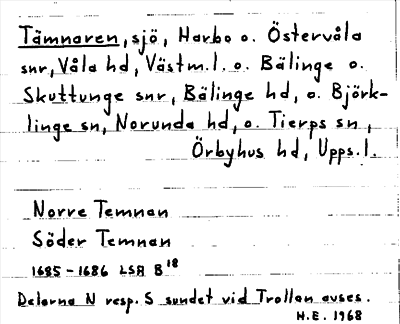 Tämnaren, sjö, Harbo o. Östervåla
snr, Våla hd, Västm.l. o. Bälinge o.
Skuttunge snr, Bälinge hd, o. Björk-
linge sn, Norunda hd, o. Tierps sn,
Örbyhus hd, Upps.l.
Norre Temnan
Söder Temnan
1685-1686 LSA B18
Delarna N resp. S sundet vid Trollan avses.
H.E. 1968